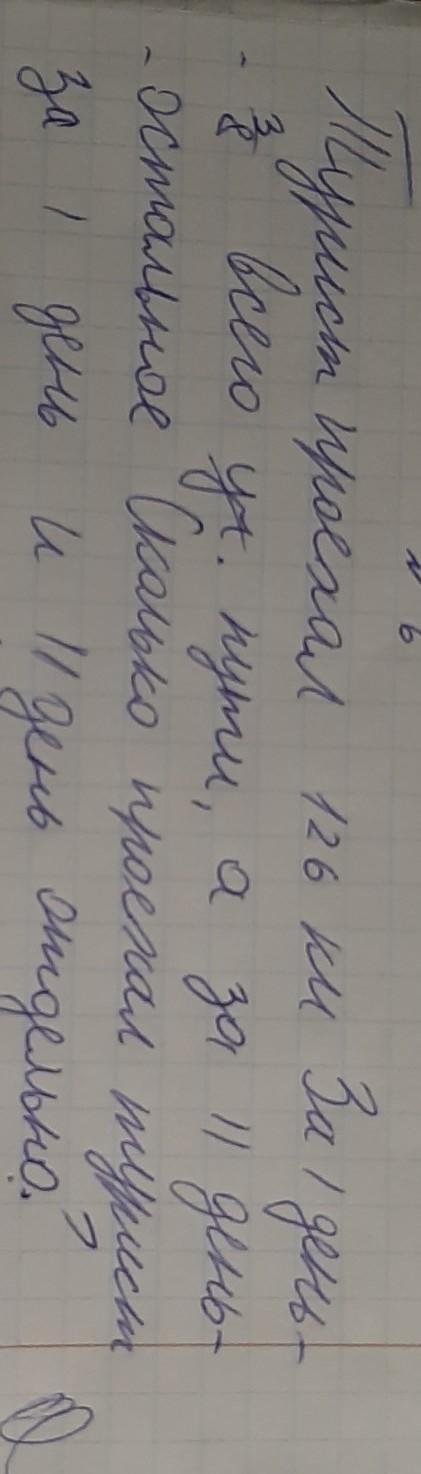 № 6
Турист проехал 126 км За I день-
- 3/8 всего уч. пути, а за II день-
- остальное Сколько проехал турист
за I день и II день отдельно?